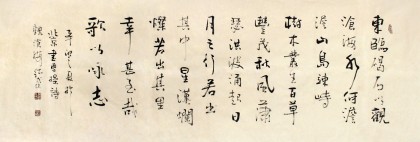 東臨碣石以觀
滄海水何澹
澹山島竦峙
樹木叢生百草
豐茂秋風蕭
瑟洪波涌起日
月之行若出
其中星漢爛
燦若出其里
幸甚至哉
歌以咏志